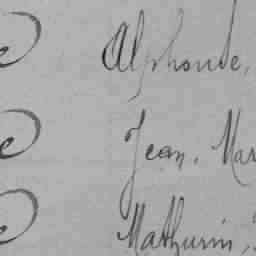 Alphonse,
Jean, Mar
Mathurin,